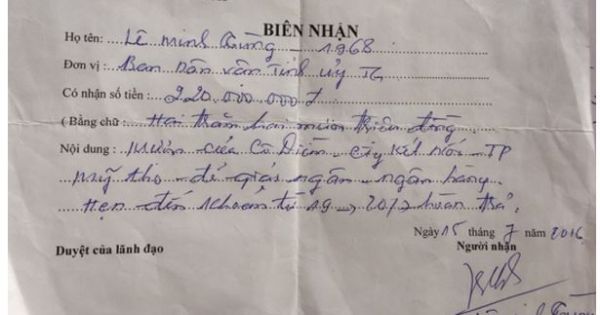 BIÊN NHẬN
Họ tên: Lê Minh Tùng - 1968
Đơn vị: Ban Dân vận Tỉnh ủy TG
Có nhận số tiền: 220.000.000đ
( Bằng chữ: Hai trăm hai mươi triệu đồng
Nội dung: Mượn của Cô Diễm - Cty Kết Nối - TP
Mỹ Tho - để giải ngân ngân hàng.
Hẹn đến khoản từ 19 → 20/7 hoàn trả.
Ngày 15 tháng 7 năm 2016
Duyệt của lãnh đạo
Người nhận